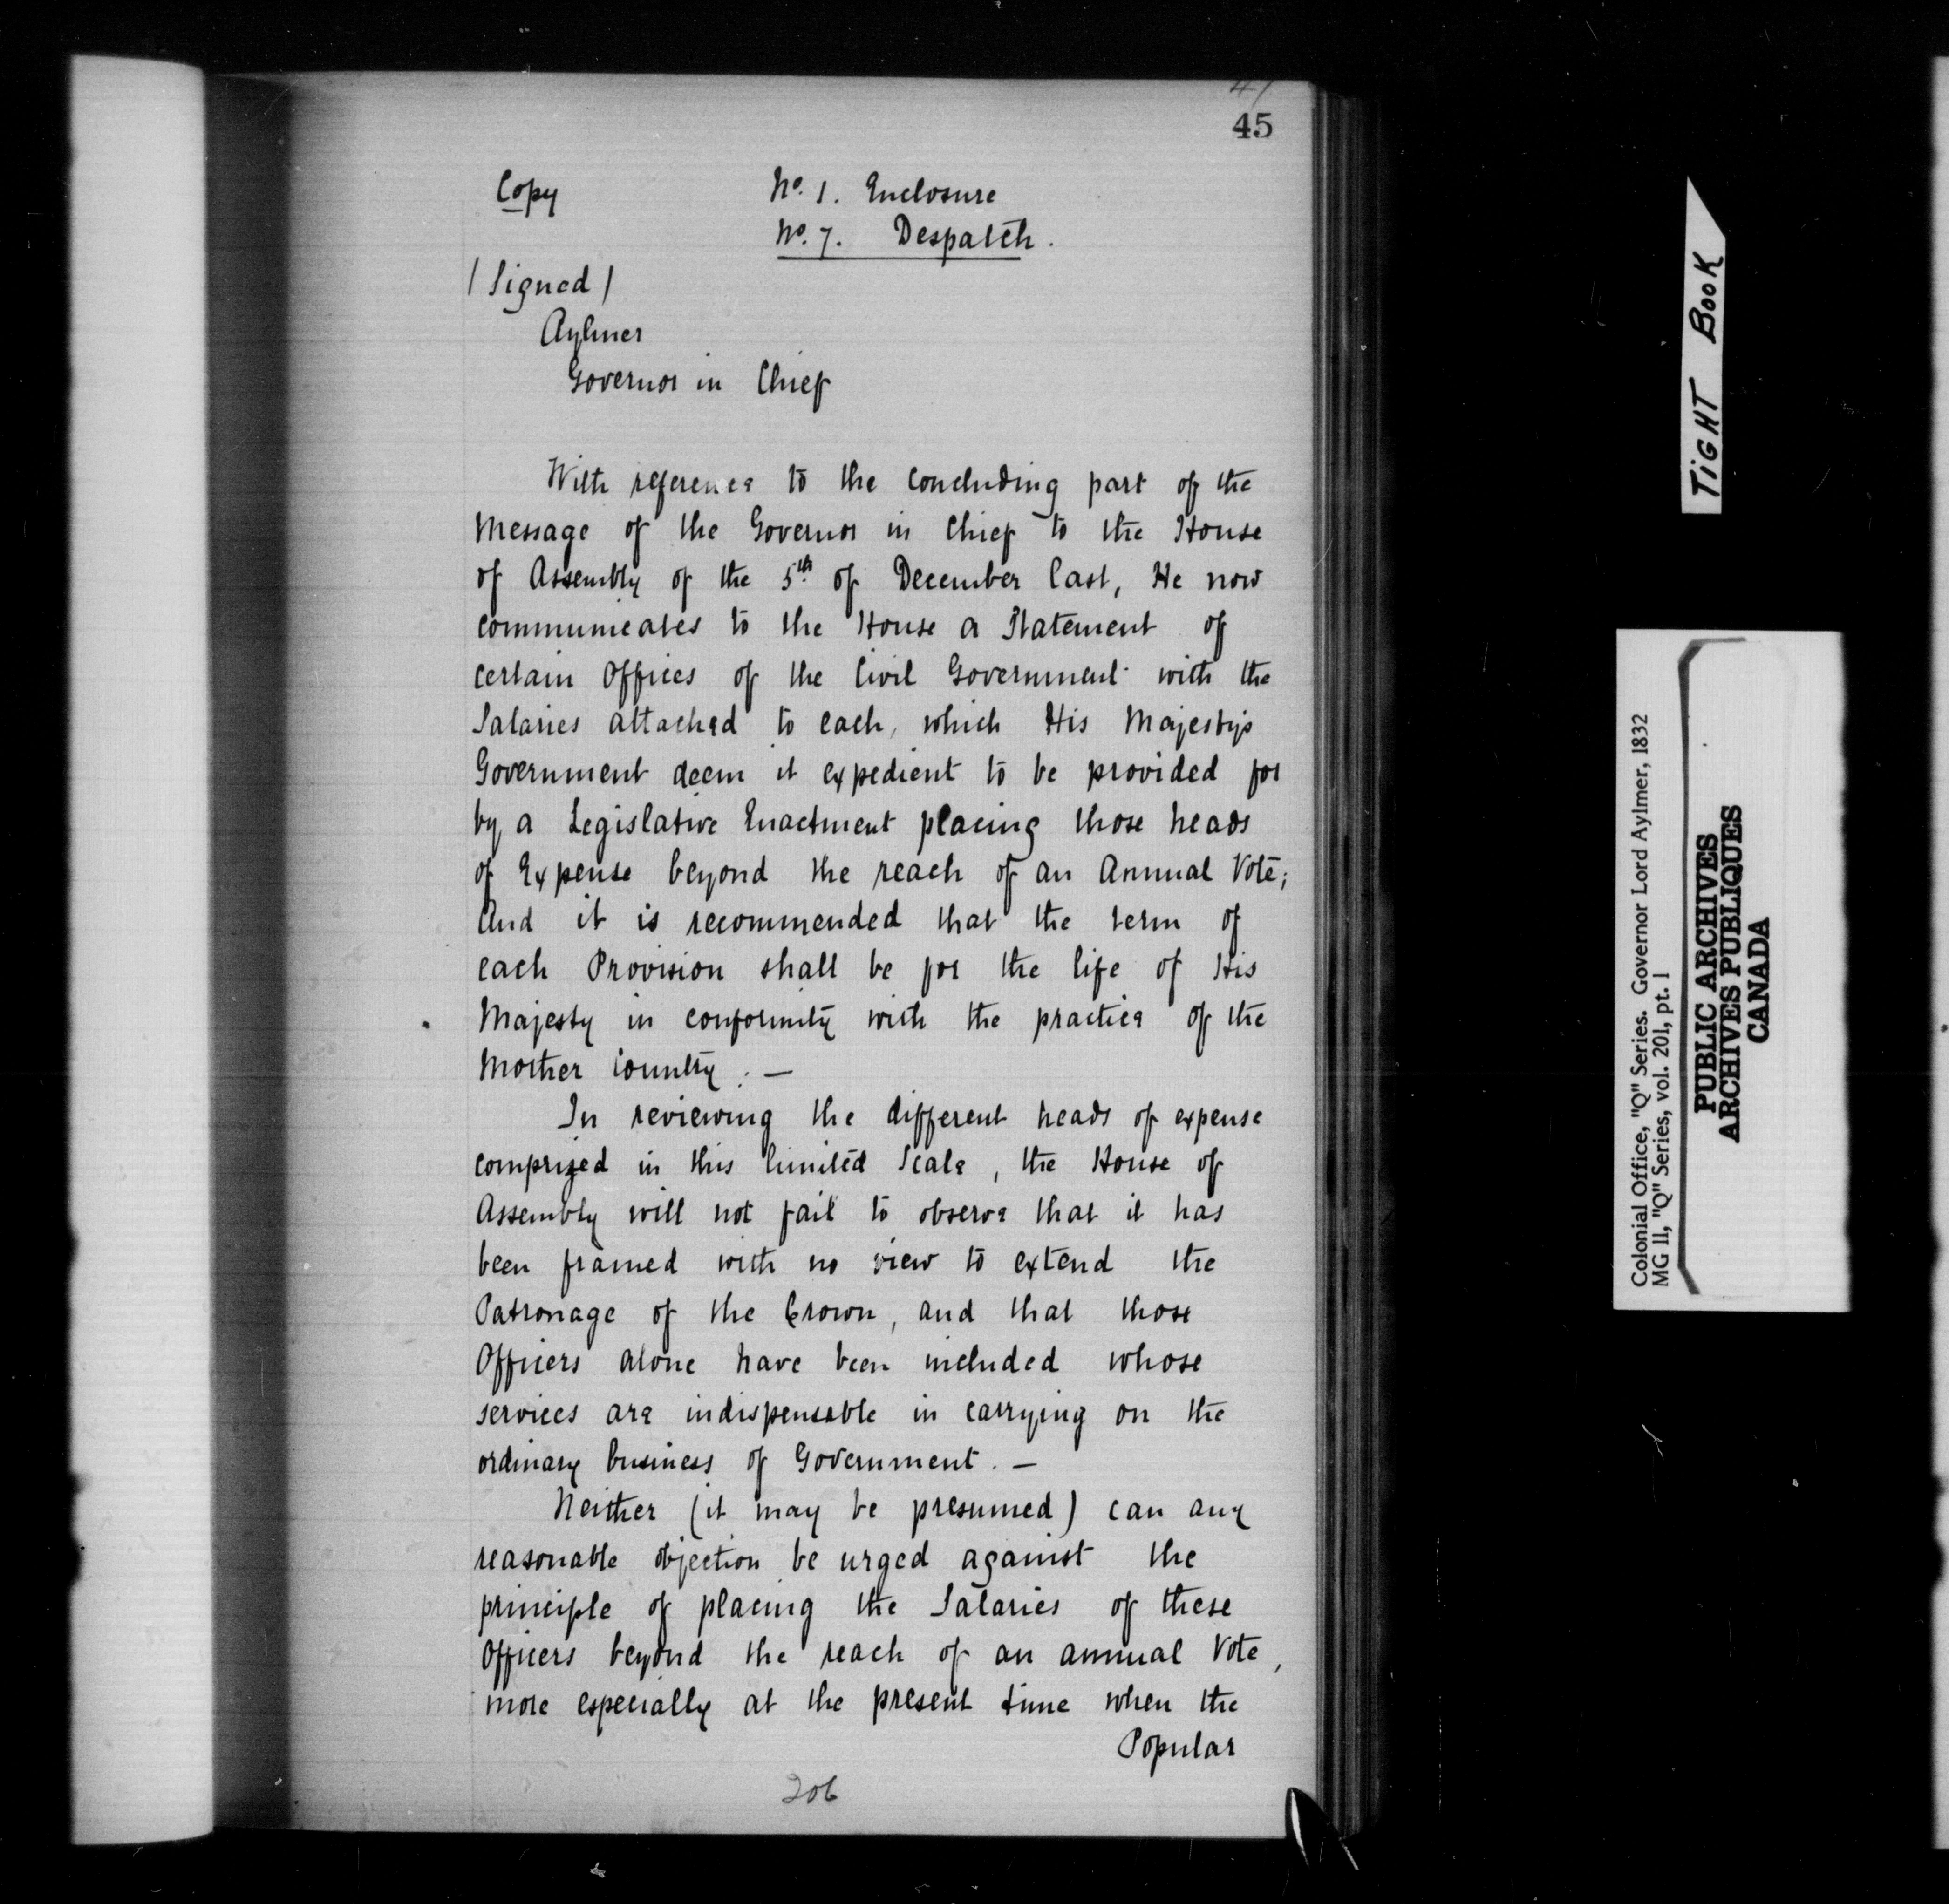 45
Copy
No. 1. Enclosure
No. 7. Despatch.
/ Signed /
Aylmer
Governor in Chief
With reference to the concluding part of the
Message of the Governor in Chief to the House
of Assembly of the 5th. of December last, He now
communicates to the House a Statement of
certain Offices of the Civil Government with the
Salaries attached to each, which His Majestys
Government deem it expedient to be provided for
by a Legislative Enactment placing those heads
of Expense beyond the reach of an Annual Vote;
And it is recommended that the term of
each Provision shall be for the life of His
Majesty in conformity with the practice of the
Mother Country. —
In reviewing the different heads of expense
comprized in this limited Scale, the House of
Assembly will not fail to observe that it has
been framed with no view to extend the
Patronage of the Crown, and that those
Officers alone have been included whose
services are indispensable in carrying on the
ordinary business of Government. —
Neither (it may be presumed) can any
reasonable objection be urged against the
principle of placing the Salaries of these
Officers beyond the reach of an annual Vote,
more especially at the present time when the
Popular
206
TIGHT BOOK
Colonial Office, "Q" Series. Governor Lord Aylmer, 1832
MG 11, "Q" Series, vol. 201, pt. 1
PUBLIC ARCHIVES
ARCHIVES PUBLIQUES
CANADA